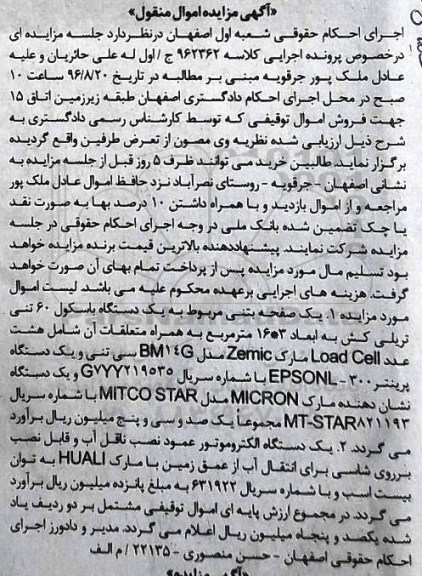 «آگهی مزایده اموال منقول»
اجرای احکام حقوقی شعبه اول اصفهان درنظردارد جلسه مزایده ای
درخصوص پرونده اجرایی کلاسه ۹۶۲۳۶۲ ج / اول له علی حائریان و علیه
عادل ملک پور جرقویه مبنی بر مطالبه در تاریخ ۹۶/۸/۲۰ ساعت ۱۰
صبح در محل اجرای احکام دادگستری اصفهان طبقه زیرزمین اتاق ۱۵
جهت فروش اموال توقیفی که توسط کارشناس رسمی دادگستری به
شرح ذیل ارزیابی شده نظریه وی مصون از تعرض طرفین واقع گردیده
برگزار نماید. طالبین خرید می توانند ظرف ۵ روز قبل از جلسه مزایده به
نشانی اصفهان - جرقویه - روستای نصرآباد نزد حافظ اموال عادل ملک پور
مراجعه و از اموال بازدید و با همراه داشتن ۱۰ درصد بها به صورت نقد
یا چک تضمین شده بانک ملی در وجه اجرای احکام حقوقی در جلسه
مزایده شرکت نمایند. پیشنهاددهنده بالاترین قیمت برنده مزایده خواهد
بود تسلیم مال مورد مزایده پس از پرداخت تمام بهای آن صورت خواهد
گرفت. هزینه های اجرایی برعهده محکوم علیه می باشد. لیست اموال
مورد مزایده ۱. یک صفحه بتنی مربوط به یک دستگاه باسکول ۶۰ تنی
تریلی کش به ابعاد ۳*۱۶ مترمربع به همراه متعلقات آن شامل هشت
عدد Load Cell مارک Zemic مدل BM۱٤G سی تنی و یک دستگاه
پرینتر EPSONL - ۳۰۰ با شماره سریال G۷۷۷۲۱۹۵۳۵ و یک دستگاه
نشان دهنده مارک MICRON مدل MITCO STAR با شماره سریال
MT-STAR۸۲۱۱۹۳ مجموعاً یک صد و سی و پنج میلیون ریال برآورد
می گردد. ۲. یک دستگاه الکتروموتور عمود نصب ناقل آب و قابل نصب
برروی شاسی برای انتقال آب از عمق زمین با مارک HUALI به توان
بیست اسب و با شماره سریال ۶۳۱۹۲۲ به مبلغ پانزده میلیون ریال برآورد
می گردد. در مجموع ارزش پایه ای اموال توقیفی مشتمل بر دو ردیف یاد
شده یکصد و پنجاه میلیون ریال اعلام می گردد. مدیر و دادورز اجرای
احکام حقوقی اصفهان - حسن منصوری - ۲۲۱۳۵ / م الف
«آگهی مزایده»